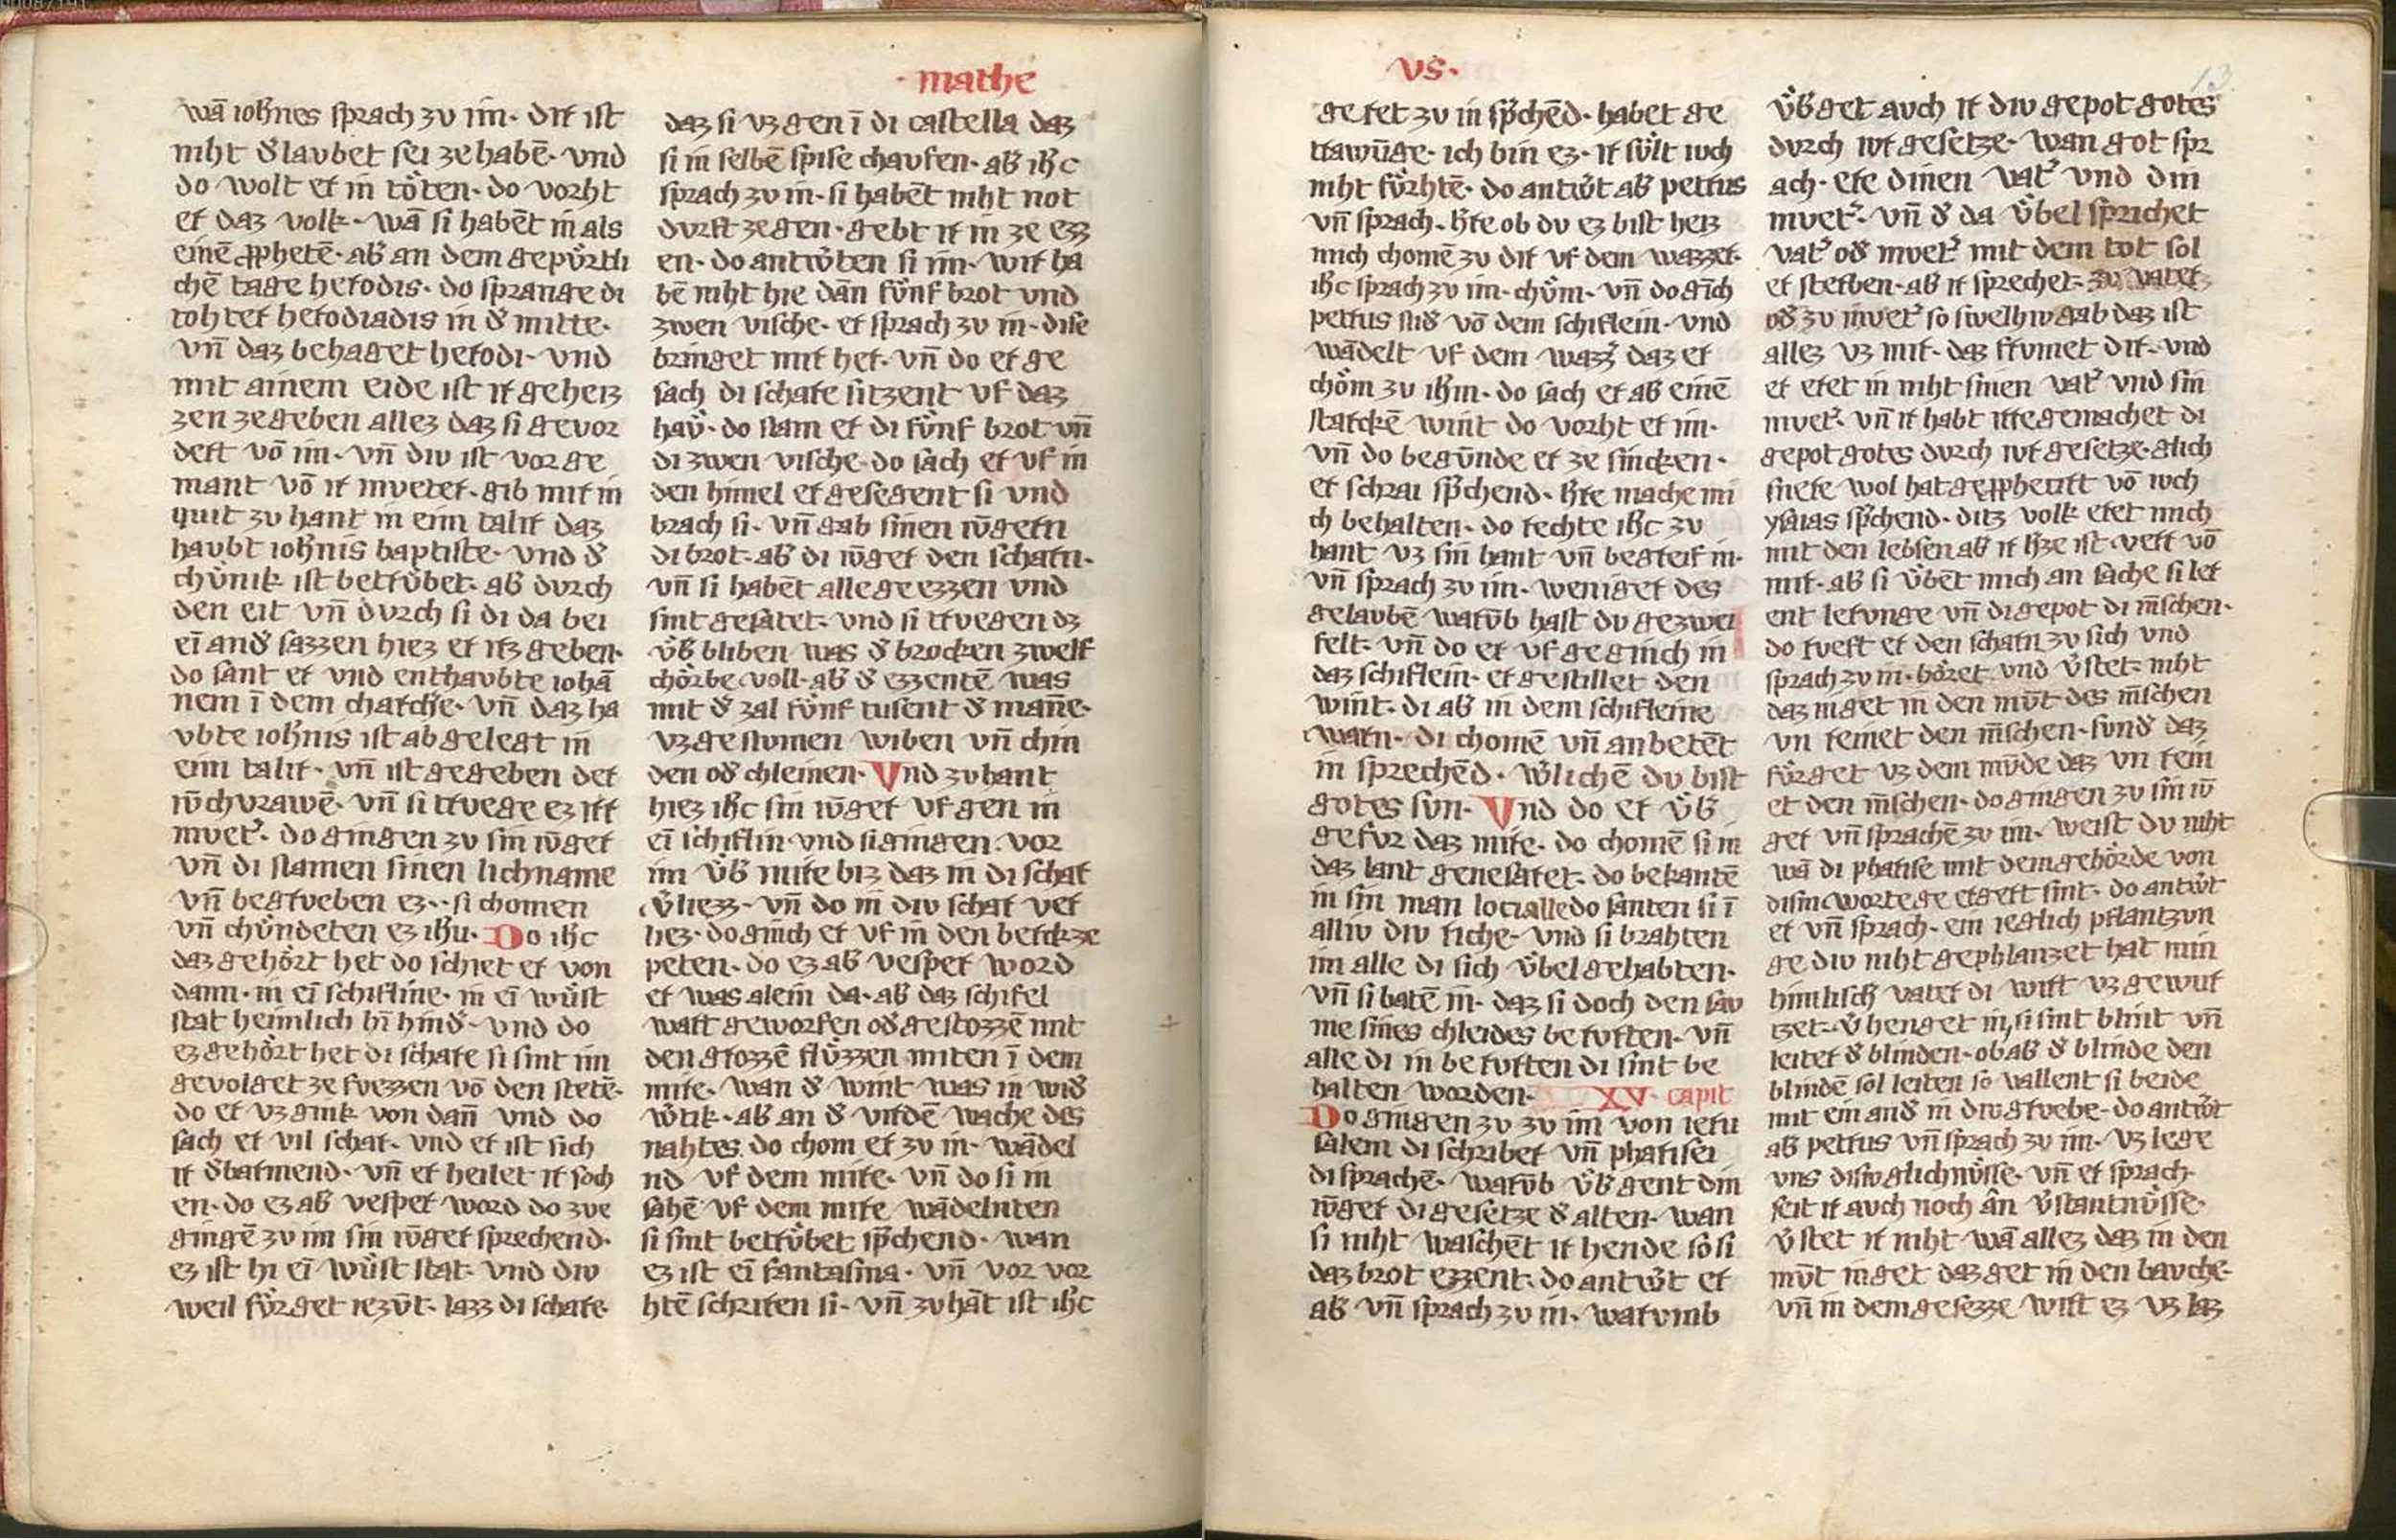 · mathe
wā ioh̄nes sprach zv im· dir ist
niht d̾ lavbet sei ze habē· vnd
do wolt er in töten· do vorht
er daz volk· wā si habēt in als
einē ꝓphetē· ab̾ an dem gepv̊rtli
chē tage herodis· do sprange di
tohter herodiadis in d̾ mitte·
vn̄ daz behaget herodi· vnd
mit ainem eide ist ir geheiz
zen ze geben allez daz si gevor
dert vō im· vn̄ div ist vor ge
mant vō ir mveter· gib mir in
quit zv hant in eim talir daz
havbt ioh̄nis baptiste· vnd d̾
chv̊nik ist betrv̊bet· ab̾ dvrch
den eit vn̄ dvrch si di da bei
eī and̾ sazzen hiez er irz geben·
do sant er vnd enthavbte iohā
nem ī dem charch̾e· vn̄ daz ha
vbte ioh̄nis ist abgelegt in
eim talir· vn̄ ist gegeben der
iv̄chvrawē· vn̄ si trvege ez irr
mvet̾· do gingen zv sin iv̄ger
vn̄ di namen sinen lichname
vn̄ begrveben ez·· si chomen
vn̄ chv̊ndeten ez ih̄u· Do ih̄c
daz gehört het do schiet er von
dann· in eī schifline· in eī wv̊st
stat heimlich hī hind̾· vnd do
ez gehört het di schare si sint im
gevolget ze fvezzen vō den stetē·
do er vz gink von dan̄ vnd do
sach er vil schar· vnd er ist sich
ir d̾barmend· vn̄ er heilet ir soch
en· do ez ab̾ vesper word do zve
gingē zv im sin iv̄ger sprechend·
ez ist hi eī wv̊st stat· vnd div
weil fv̊rget iezv̄t· lazz di schare·
daz si vz gen ī di castella daz
si in selbē spise chavfen· ab̾ ih̄c
sprach zv in· si habēt niht not
dvrft ze gen· gebt ir in ze ezz
en· do antẘten si im· wir ha
bē niht hie dān fv̊nf brot vnd
zwen vische· er sprach zv in· dise
bringet mir her· vn̄ do er ge
sach di schare sitzent vf daz
hav̊· do nam er di fv̊nf brot vn̄
di zwen vische· do sach er vf in
den himel er gesegent si vnd
brach si· vn̄ gab sinen iv̄gern
di brot· ab̾ di iv̄ger den scharn·
vn̄ si habēt alle geezzen vnd
sint gesatet· vnd si trvegen dz
v̊b̾ bliben was d̾ brocken zwelf
chörbe voll· ab̾ d̾ ezzentē was
mit d̾ zal fv̊nf tusent d̾ man̄e·
vzgenvmen wiben vn̄ chin
den od̾ chleinen· Vnd zvhant
hiez ih̄c sin iv̄ger vf gen in
eī schiflin vnd si gingen vor
im v̊b̾ mire biz daz in di schar
v̾liezz· vn̄ do in div schar ver
liez· do ginch er vf in den berckze
peten· do ez ab̾ vesper word
er was alein da· ab̾ daz schifel
wart geworfen od̾ gestozzē mit
den grozzē flv̊zzen miten ī dem
mire· wan d̾ wint was in wid̾
w̾tik· ab̾ an d̾ virdē wache des
nahtes· do chom er zv in· wādel
nd vf dem mire· vn̄ do si in
sahē vf dem mire wādelnten
si sint betrv̊bet sp̄chend· wan
ez ist eī fantasma· vn̄ vor vor
htē schriren si· vn̄ zvhāt ist ih̄c
vs·
13
geret zv in sp̄chēd· habet ge
trawv̄ge· ich bin ez· ir sv̊lt ivch
niht fv̊rhtē· do antẘt ab̾ petrus
vn̄ sprach· h̾re ob dv ez bist heiz
mich chomē zv dir vf dem wazzer·
ih̄c sprach zv im· chv̊m· vn̄ do gīch
petrus nid̾ vō dem schiflein· vnd
wādelt vf dem wazz̾ daz er
chöm zv ih̄m· do sach er ab̾ einē
starckē wint do vorht er im·
vn̄ do begv̄nde er ze sincken·
er schrai sp̄chend· h̾re mache mi
ch behalten· do rechte ih̄c zv
hant vz sin hant vn̄ begreif in·
vn̄ sprach zv im· weniger des
gelavbē warv̄b hast dv gezwei
felt· vn̄ do er vf geginch in
daz schiflein· er gestillet den
wint· di ab̾ in dem schifleine
warn· di chomē vn̄ anbetēt
in sprechēd· w̾lichē dv bist
gotes svn· Vnd do er v̊b̾
gefvr daz mire· do chomē si in
daz lant genesaret· do bekantē
in sin man loci alle do santen si ī
alliv div riche· vnd si brahten
im alle di sich v̊bel gehabten·
vn̄ si batē in· daz si doch den sav
me sines chleides bervrten· vn̄
alle di in bervrten di sint be
halten worden· XV· capit
Do gingen zv zv im von ierv
salem di schriber vn̄ pharisei
di sprachē· warv̄b v̊b̾gent din
iv̄ger di gesetze d̾ alten· wan
si niht waschēt ir hende so si
daz brot ezzent· do antẘt er
ab̾ vn̄ sprach zv in· warvmb
v̊b̾get avch ir div gepot gotes
dvrch ivr gesetze· wan got spr
ach· ere dinen vat̾ vnd din
mvet̾· vn̄ d̾ da v̊bel sprichet
vat̾ od̾ mvet̾ mit dem tot sol
er sterben· ab̾ ir sprechet· zv vater
od̾ zv mvet̾ so swelhiv gab daz ist
allez vz mir· daz frvmet dir· vnd
er eret in niht sinen vat̾ vnd sin
mvet̾· vn̄ ir habt irre gemachet di
gepot gotes dvrch ivr gesetze· glich
snere wol hat geꝓphetirt vō ivch
ysaias sp̄chend· ditz volk eret mich
mit den lebsen ab̾ ir h̾ze ist verr vō
mir· ab̾ si v̊bēt mich an sache si ler
ent lerunge vn̄ di gepot di m̄schen·
do rveft er den scharn zv sich vnd
sprach zv in· höret vnd v̾stet· niht
daz inget in den mv̄t des m̄schen
vn reinet den m̄schen· svnd̾ daz
fv̊rget vz dem mv̄de daz vn rein
et den m̄schen· do gingen zv im iv̄
ger vn̄ sprachē zv im· weist dv niht
wā di pharise mit dem gehörde von
disim worte geergert sint· do antẘt
er vn̄ sprach· ein ieglich pflantzvn
ge div niht gephlanzet hat min
himlisch̾ vater di wirt vz gewur
tzet· v̾henget in, si sint blint vn̄
leiter d̾ blinden· ob ab̾ d̾ blinde den
blindē sol leiten so vallent si beide
mit ein and̾ in div grvebe· do antẘt
ab̾ petrus vn̄ sprach zv im· vz lege
vns disiv glichnv̊sse· vn̄ er sprach·
seit ir avch noch ān v̾stantnv̊sse·
v̾stet ir niht wā allez daz in den
mv̄t inget daz get in den bavche·
vn̄ in dem gesezze wirt ez vz laz